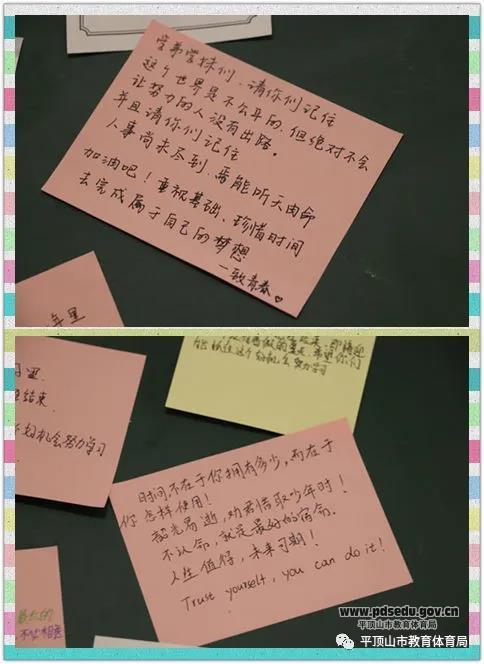 学弟学妹们、请你们记住
这个世界是不公平的,但绝对不会
让努力的人没有出路。
并且请你们记住
人事尚未尽到,焉能听天由命
加油吧!重视基础、珍惜时间
去完成属于自己的梦想
一致青春♥
年里
结束
机会努力学习
时间不在于你拥有多少,而在于
你怎样使用!
韶光易逝,劝君惜取少年时!
不认命,就是最好的宿命.
人生值得,未来可期!
Trust yourself, you can do it!
www.pdsedu.gov.cn
平顶山市教育体育局
平顶山市教育体育局